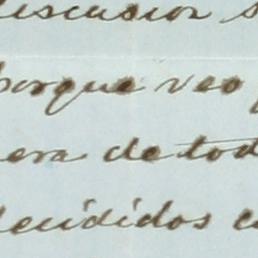 discusion s
porque veo
era de tod
decididos c